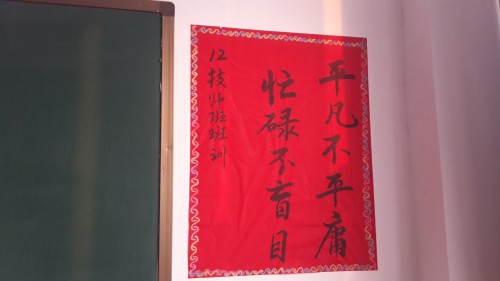 平凡不平庸
忙碌不盲目
12技师班班训